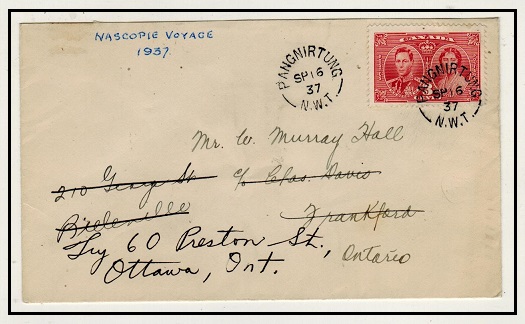 NASCOPIE VOYAGE
1937
PANGNIRTUNG
SP 16
37
N.W.T.
CANADA
PANGNIRTUNG
SP 16
37
N.W.T.
Mr. W. Murray Hall
c/o Chas. Davis
Frankford
Ontario
210 George St
Belleville
Try 60 Preston St.,
Ottawa, Ont.